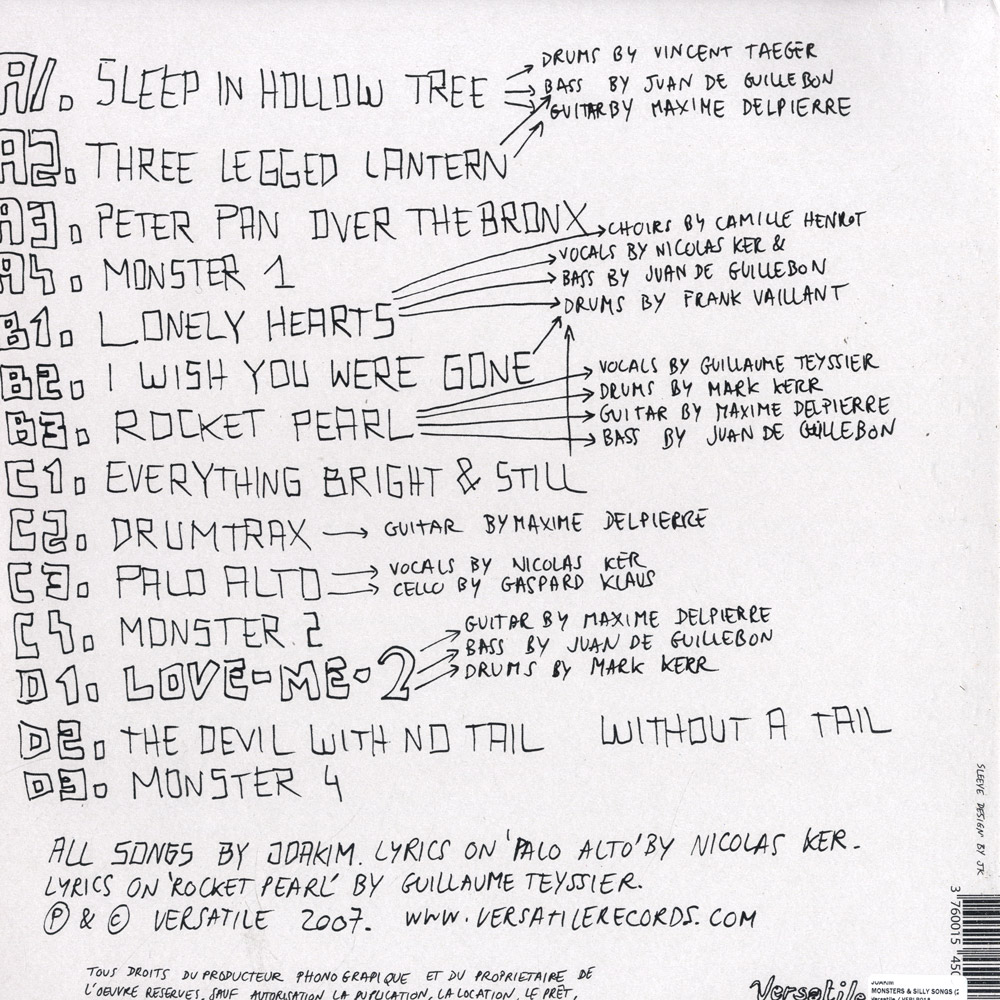 A1. SLEEP IN HOLLOW TREE
DRUMS BY VINCENT TAEGER
BASS BY JUAN DE GUILLEBON
GUITAR BY MAXIME DELPIERRE
A2. THREE LEGGED LANTERN
A3. PETER PAN OVER THE BRONX
A4. MONSTER 1
B1. LONELY HEARTS
CHOIRS BY CAMILLE HENROT
VOCALS BY NICOLAS KER &
BASS BY JUAN DE GUILLEBON
DRUMS BY FRANK VAILLANT
B2. I WISH YOU WERE GONE
B3. ROCKET PEARL
VOCALS BY GUILLAUME TEYSSIER
DRUMS BY MARK KERR
GUITAR BY MAXIME DELPIERRE
BASS BY JUAN DE GUILLEBON
C1. EVERYTHING BRIGHT & STILL
C2. DRUMTRAX
GUITAR BY MAXIME DELPIERRE
C3. PALO ALTO
VOCALS BY NICOLAS KER
CELLO BY GASPARD KLAUS
C4. MONSTER 2
D1. LOVE-ME-2
GUITAR BY MAXIME DELPIERRE
BASS BY JUAN DE GUILLEBON
DRUMS BY MARK KERR
D2. THE DEVIL WITH NO TAIL WITHOUT A TAIL
D3. MONSTER 4
ALL SONGS BY JOAKIM. LYRICS ON 'PALO ALTO' BY NICOLAS KER.
LYRICS ON 'ROCKET PEARL' BY GUILLAUME TEYSSIER.
Ⓟ & © VERSATILE 2007. WWW.VERSATILERECORDS.COM
TOUS DROITS DU PRODUCTEUR PHONOGRAPIQUE ET DU PROPRIETAIRE DE
L'OEUVRE RESERVES. SAUF AUTORISATION LA PUPLICATION, LA LOCATION, LE PRÊT,
SLEEVE DESIGN BY JK
3 760015 450
Versatile
JOAKIM
MONSTERS & SILLY SONGS (2